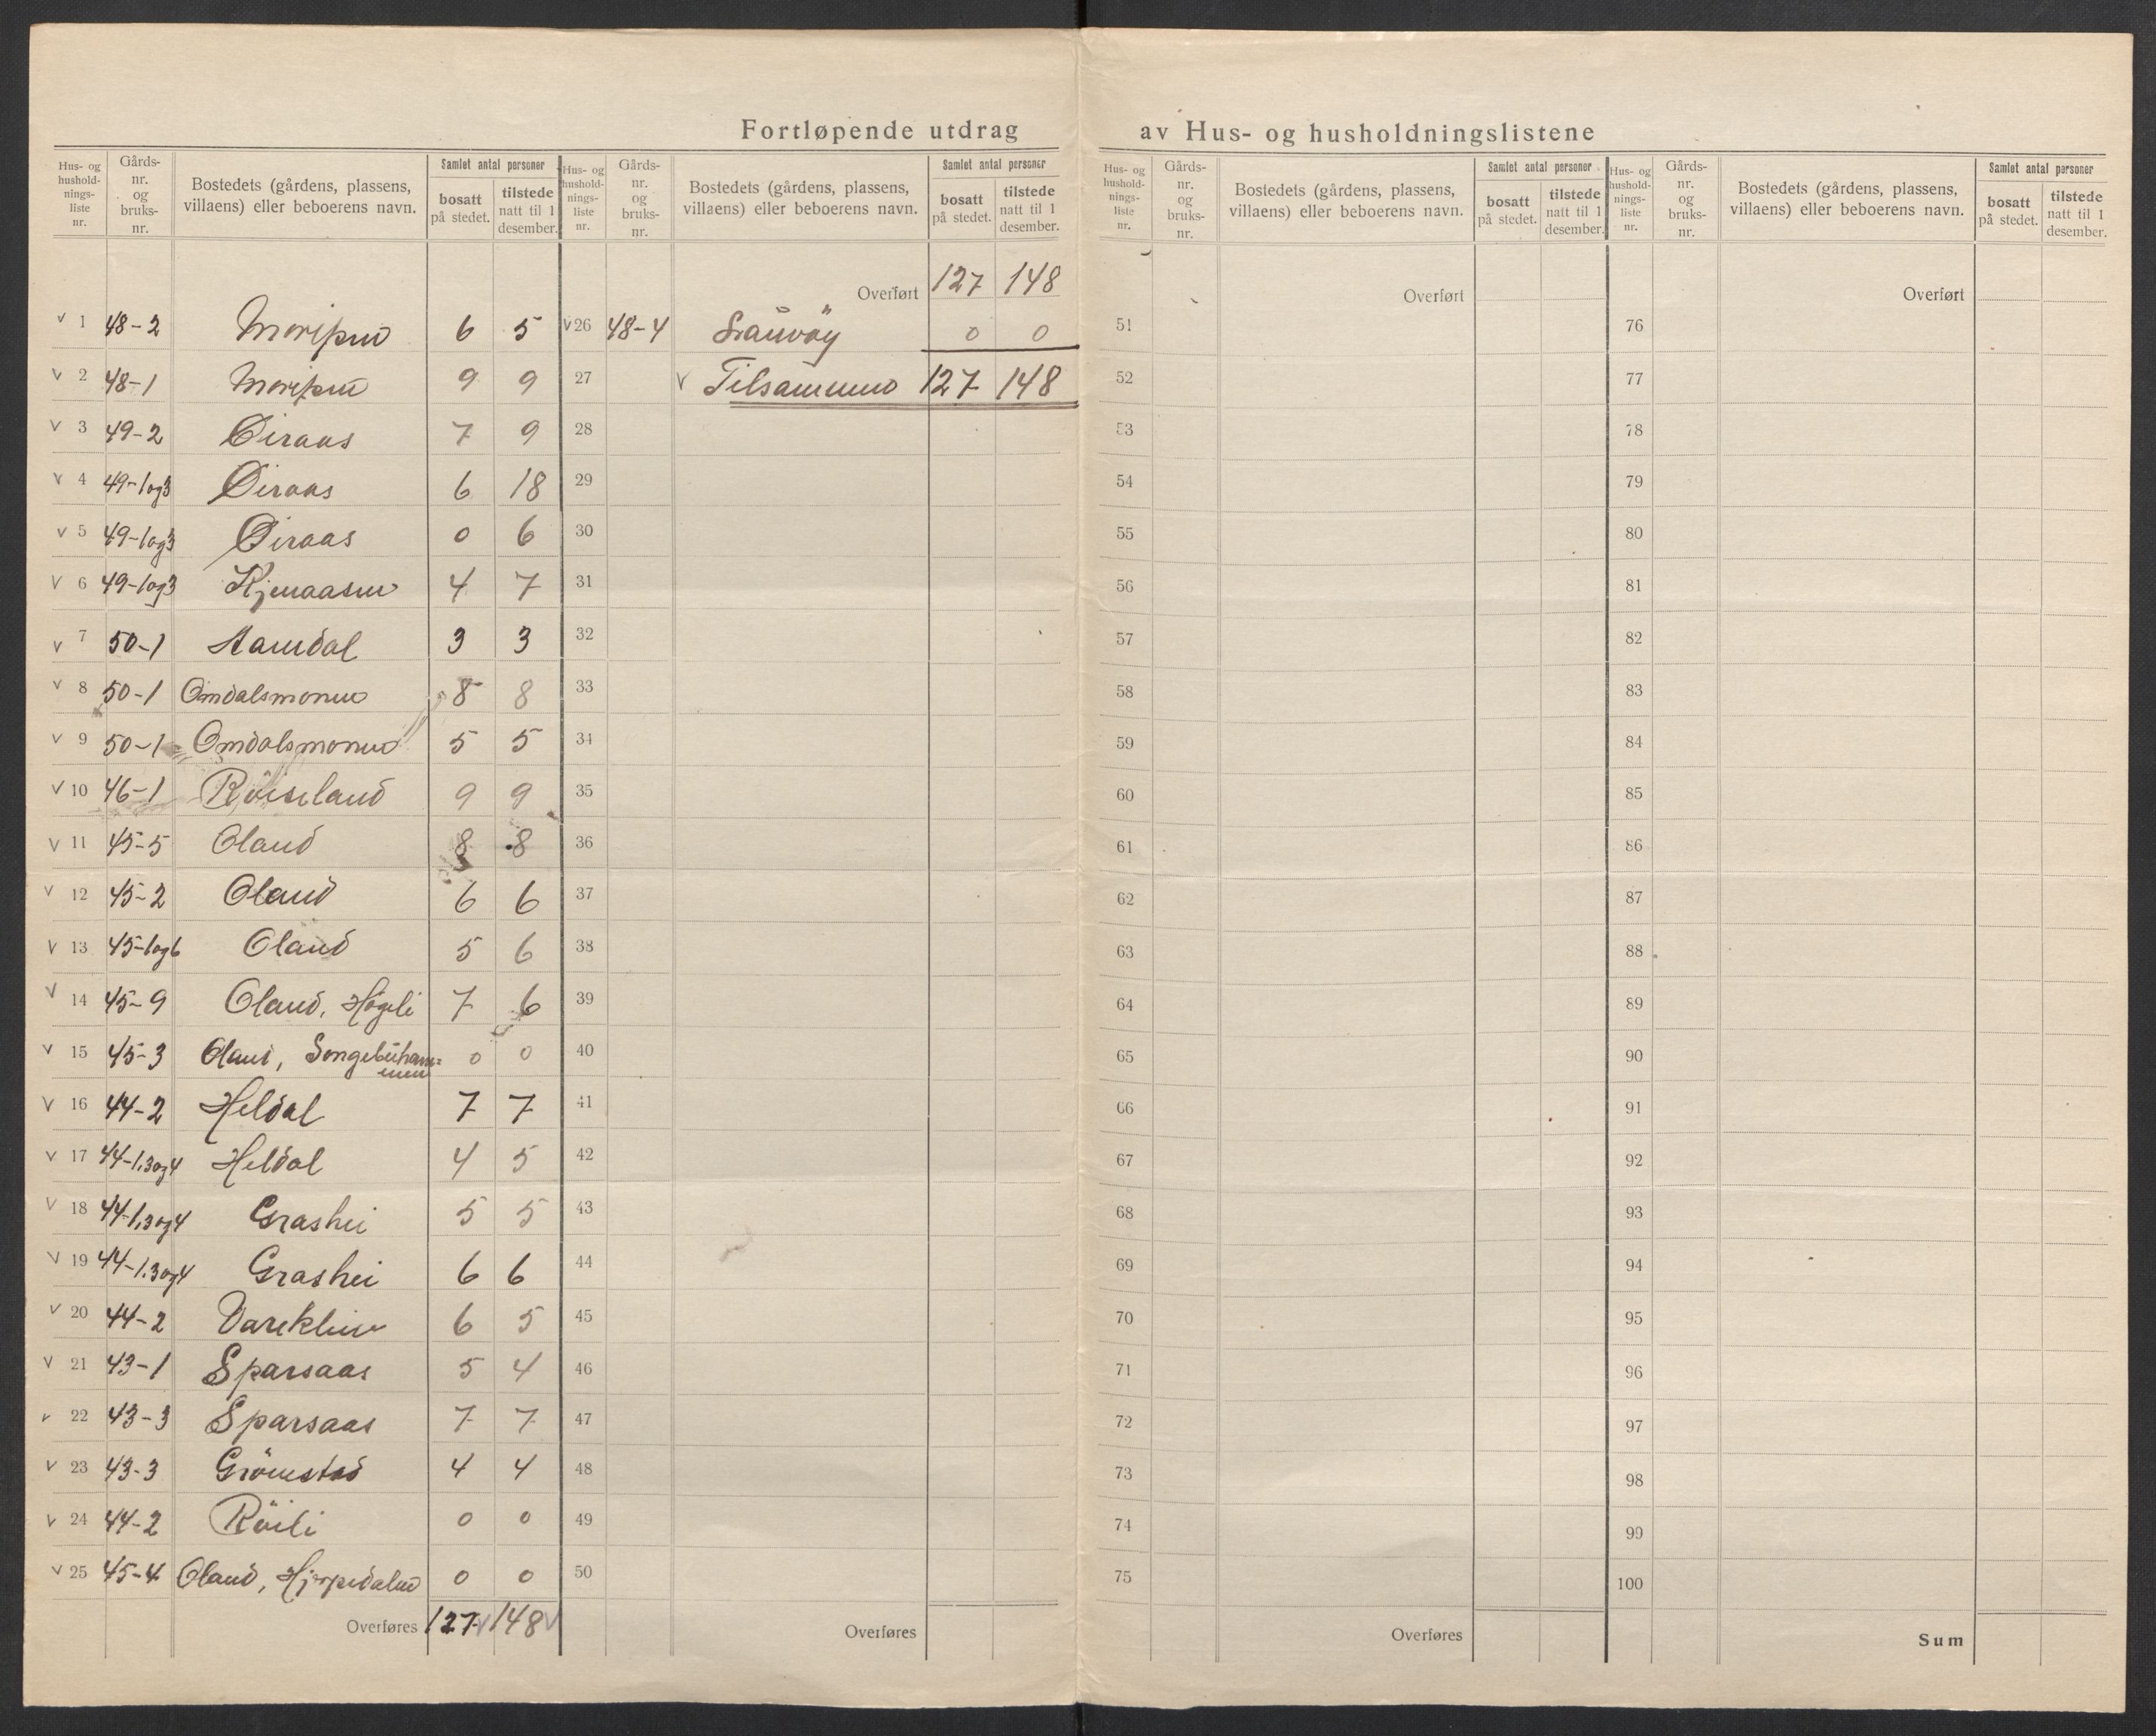 Fortløpende utdrag av Hus- og husholdningslistene
Hus- og husholdnings- liste nr. | Gårds- nr. og bruks- nr. | Bostedets (gårdens, plassens, villaens) eller beboerens navn. | Samlet antal personer | bosatt på stedet. | tilstede natt til 1 desember.
Hus- og husholdnings- liste nr. | Gårds- nr. og bruks- nr. | Bostedets (gårdens, plassens, villaens) eller beboerens navn. | Samlet antal personer | bosatt på stedet. | tilstede natt til 1 desember.
Hus- og husholdnings- liste nr. | Gårds- nr. og bruks- nr. | Bostedets (gårdens, plassens, villaens) eller beboerens navn. | Samlet antal personer | bosatt på stedet. | tilstede natt til 1 desember.
Hus- og husholdnings- liste nr. | Gårds- nr. og bruks- nr. | Bostedets (gårdens, plassens, villaens) eller beboerens navn. | Samlet antal personer | bosatt på stedet. | tilstede natt til 1 desember.
v 1 48-2 6 5
v 2 48-1 9 9
v 3 49-2 Øiraas 7 9
v 4 49-1og3 Øiraas 6 18
v 5 49-1og3 Øiraas 0 6
v 6 49-1og3 4 7
v 7 50-1 Aamdal 3 3
v 8 50-1 Omdalsmonen 8 8
v 9 50-1 Omdalsmonen 5 5
v 10 46-1 Röiseland 9 9
v 11 45-5 Oland 8 8
v 12 45-2 Oland 6 6
v 13 45-1og6 Oland 5 6
v 14 45-9 Oland, Högeli 7 6
v 15 45-3 Oland, 0 0
v 16 44-2 Heldal 7 7
v 17 44-1.3og4 Heldal 4 5
v 18 44-1,3og4 Grashei 5 5
v 19 44-1.3og4 Grashei 6 6
v 20 44-2 6 5
v 21 43-1 Sparsaas 5 4
v 22 43-3 Sparsaas 7 7
v 23 43-3 Grömstad 4 4
v 24 44-2 Röili 0 0
v 25 45-4 Oland, Hjerpedalen 0 0
Overføres 127 v 148 v
Overført 127 148
v 26 48-4 0 0
27 v Tilsammen 127 148
28
29
30
31
32
33
34
35
36
37
38
39
40
41
42
43
44
45
46
47
48
49
50
Overføres
Overført
51
52
53
54
55
56
57
58
59
60
61
62
63
64
65
66
67
68
69
70
71
72
73
74
75
Overføres
Overført
76
77
78
79
80
81
82
83
84
85
86
87
88
89
90
91
92
93
94
95
96
97
98
99
100
Sum